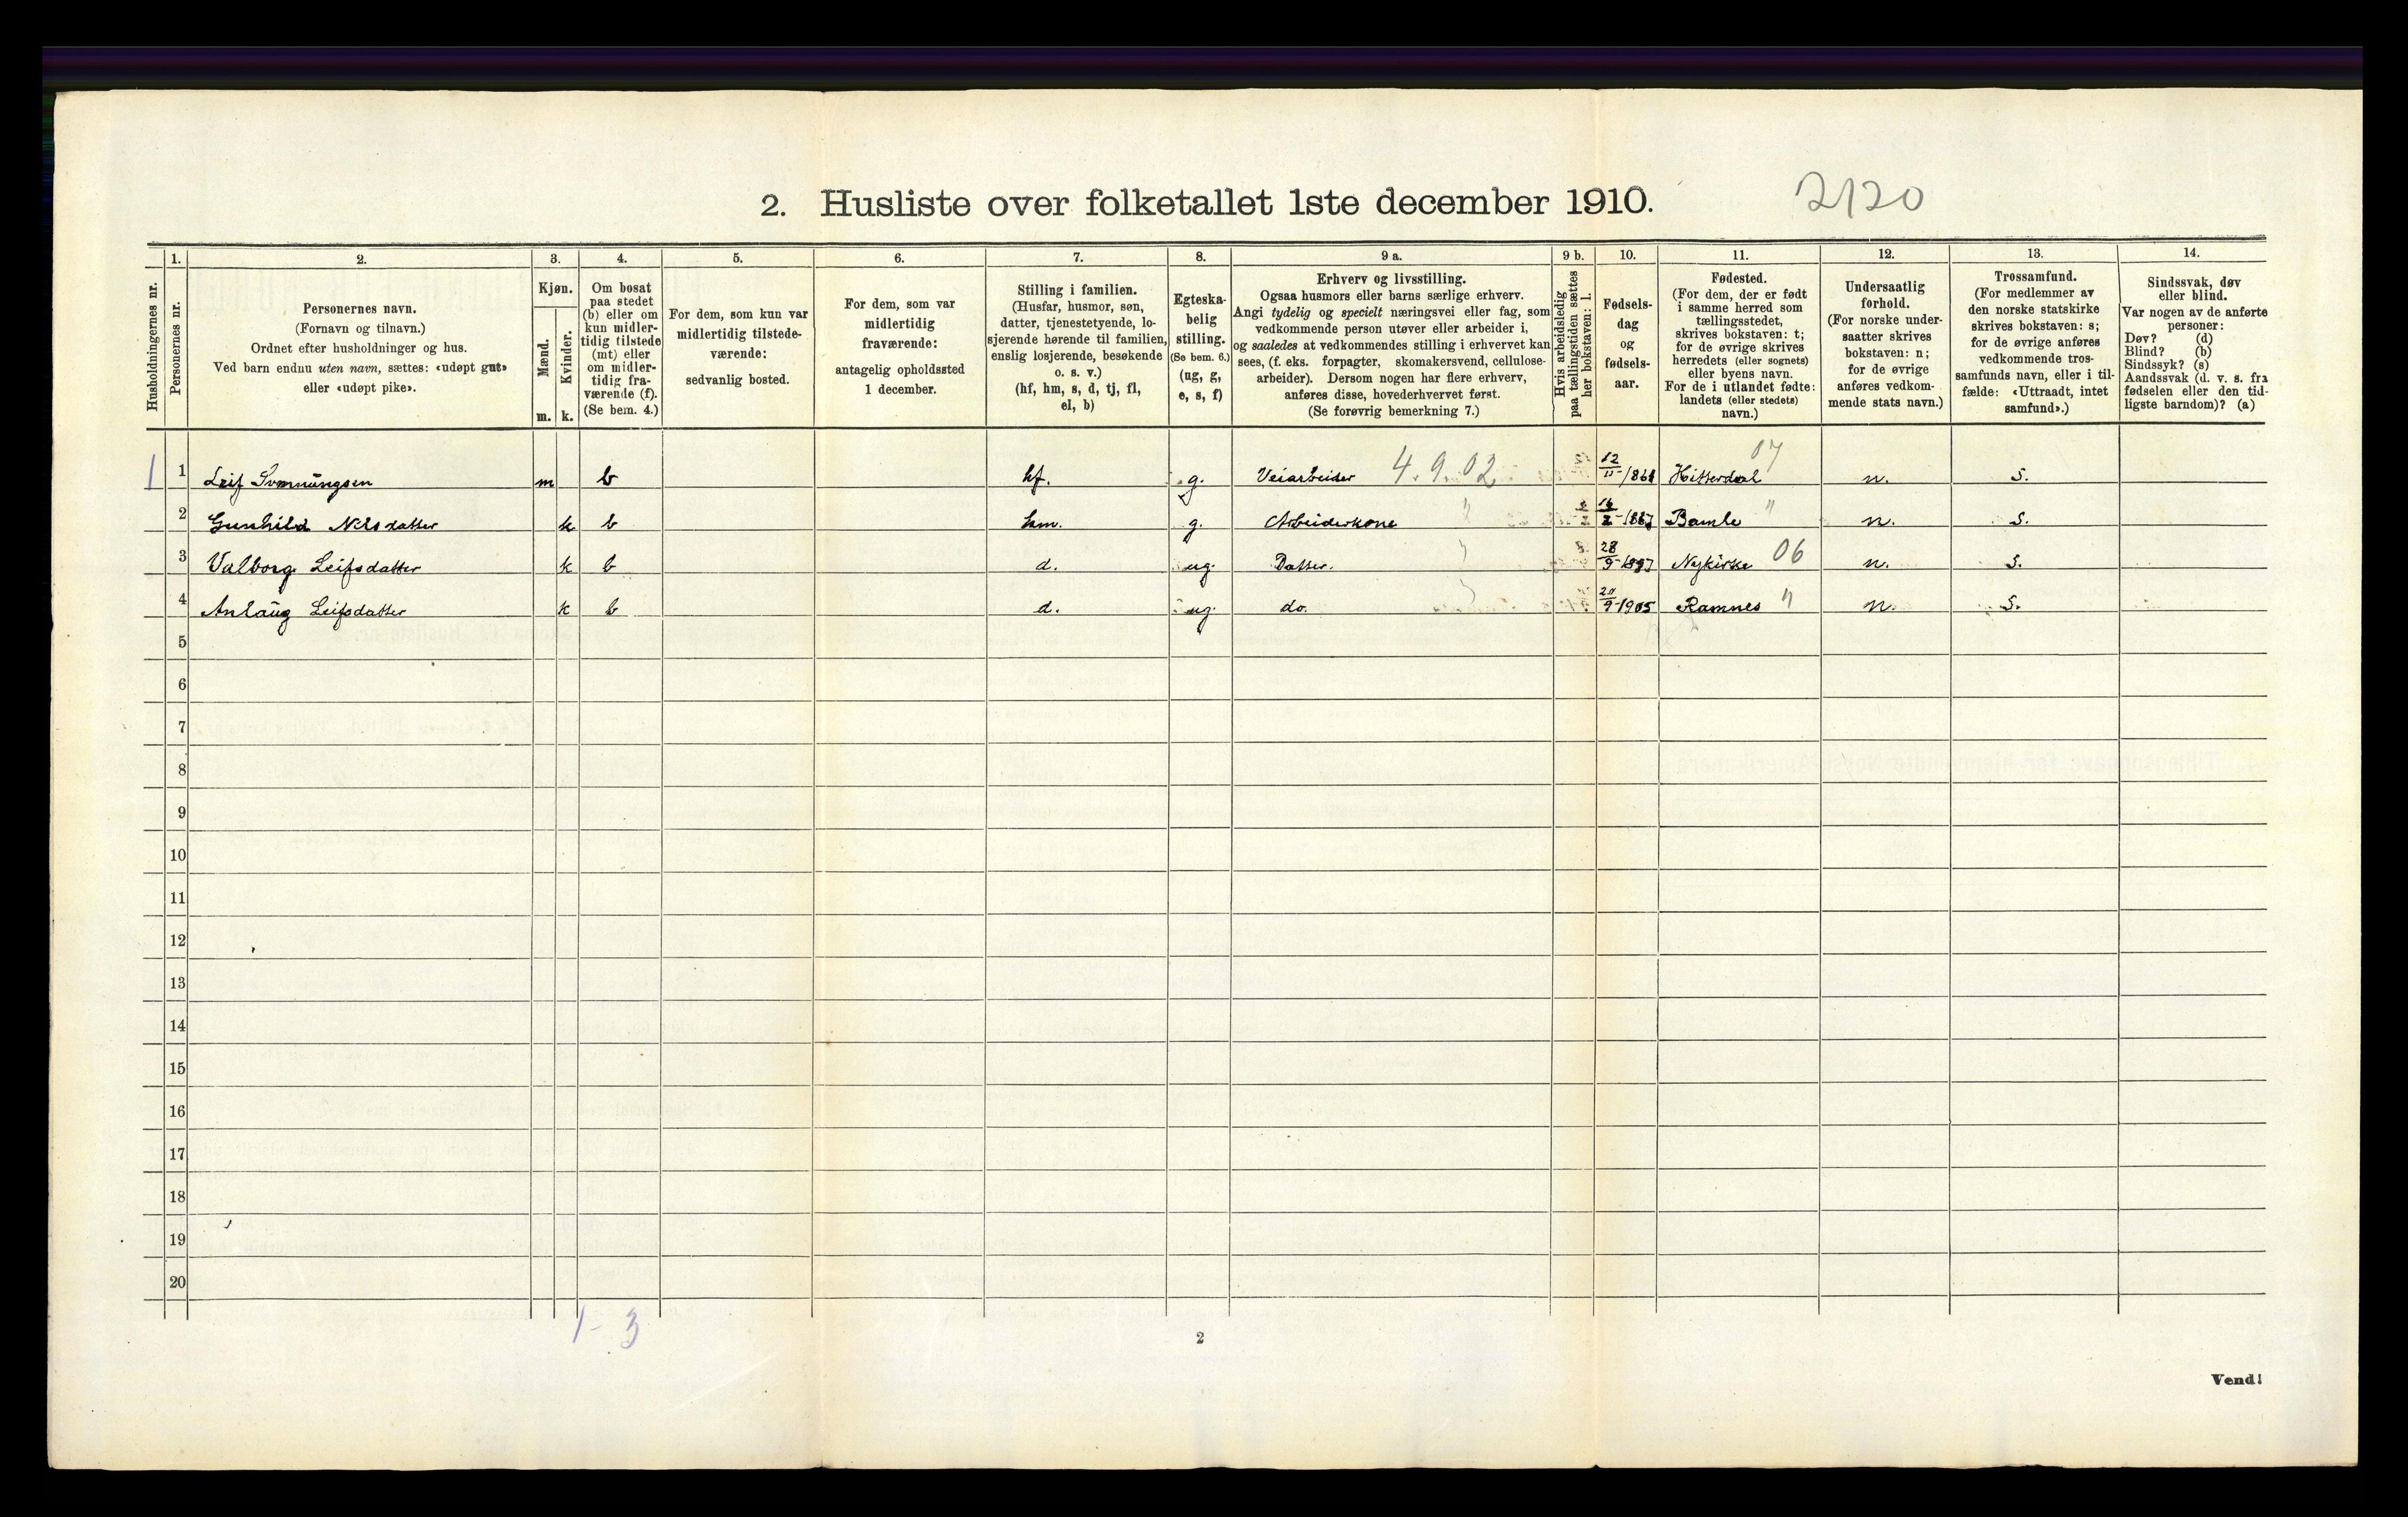 2. Husliste over folketallet 1ste december 1910.
2120
Husholdningernes nr.
1.
Personernes nr.
2.
Personernes navn.
(Fornavn og tilnavn.)
Ordnet efter husholdninger og hus.
Ved barn endnu uten navn, sættes: «udøpt gut»
eller «udøpt pike».
3.
Kjøn.
Mænd.
Kvinder.
m. k.
4.
Om bosat
paa stedet
(b) eller om
kun midler-
tidig tilstede
(mt) eller
om midler-
tidig fra-
værende (f).
(Se bem. 4.)
5.
For dem, som kun var
midlertidig tilstede-
værende:
sedvanlig bosted.
6.
For dem, som var
midlertidig
fraværende:
antagelig opholdssted
1 december.
7.
Stilling i familien.
(Husfar, husmor, søn,
datter, tjenestetyende, lo-
sjerende hørende til familien,
enslig losjerende, besøkende
o. s. v.)
(hf, hm, s, d, tj, fl,
el, b)
8.
Egteska-
belig
stilling.
(Se bem. 6.)
(ug, g,
e, s, f)
9 a.
Erhverv og livsstilling.
Ogsaa husmors eller barns særlige erhverv.
Angi tydelig og specielt næringsvei eller fag, som
vedkommende person utøver eller arbeider i,
og saaledes at vedkommendes stilling i erhvervet kan
sees, (f. eks. forpagter, skomakersvend, cellulose-
arbeider). Dersom nogen har flere erhverv,
anføres disse, hovederhvervet først.
(Se forøvrig bemerkning 7.)
9 b.
Hvis arbeidsledig
paa tællingstiden sættes
her bokstaven: l.
10.
Fødsels-
dag
og
fødsels-
aar.
11.
Fødested.
(For dem, der er født
i samme herred som
tællingsstedet,
skrives bokstaven: t;
for de øvrige skrives
herredets (eller sognets)
eller byens navn.
For de i utlandet fødte:
landets (eller stedets)
navn.)
12.
Undersaatlig
forhold.
(For norske under-
saatter skrives
bokstaven: n;
for de øvrige
anføres vedkom-
mende stats navn.)
13.
Trossamfund.
(For medlemmer av
den norske statskirke
skrives bokstaven: s;
for de øvrige anføres
vedkommende tros-
samfunds navn, eller i til-
fælde: «Uttraadt, intet
samfund».)
14.
Sindssvak, døv
eller blind.
Var nogen av de anførte
personer:
Døv? (d)
Blind? (b)
Sindssyk? (s)
Aandssvak (d. v. s. fra
fødselen eller den tid-
ligste barndom)? (a)
1 1 Leif m b hf. g. Veiarbeider 4.9.02 12/11-1861 Hitterdal 07 n. s.
2 Gunhild Nilsdatter k b hm. g. Arbeiderkone " Bamle " n. s.
3 Valborg Leifsdatter k b d. ug. Datter. " 28/9-1897 Nykirke 06 n. s.
4 Anlaug Leifsdatter k b d. ug. do. " 9-1905 Ramnes " n. s.
5
6
7
8
9
10
11
12
13
14
15
16
17
18
19
20
1-3
2
Vend!